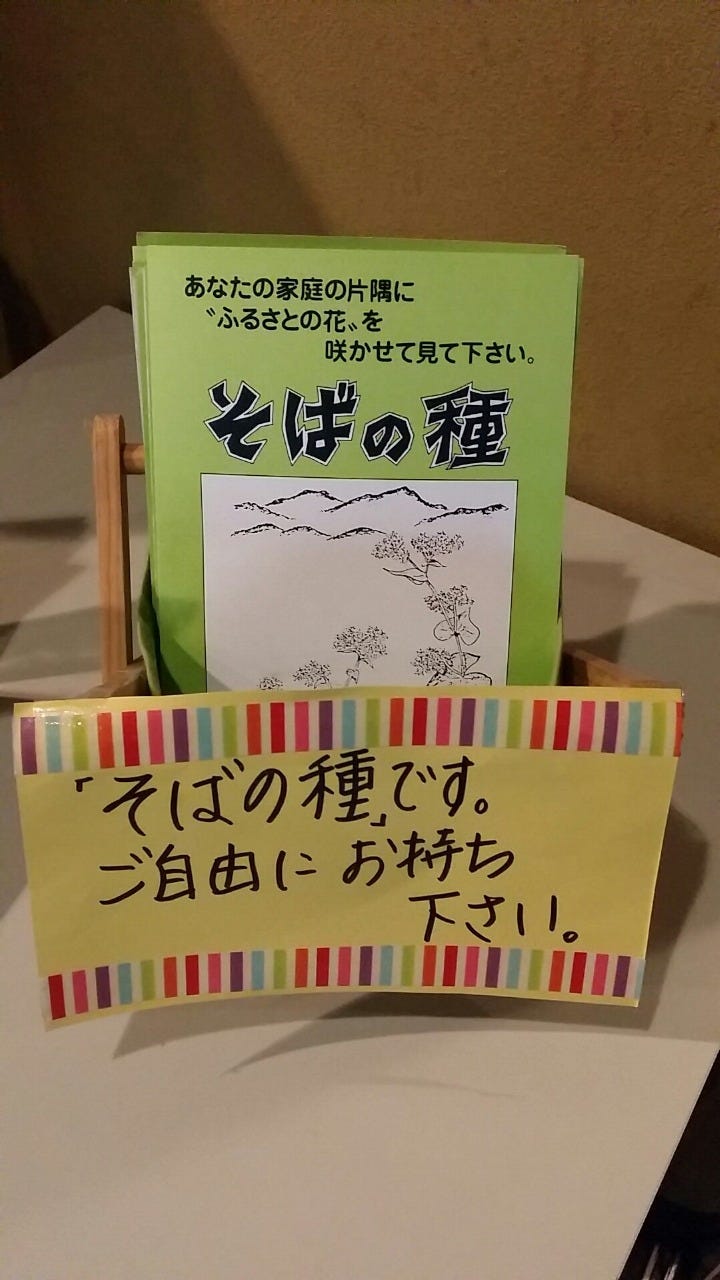 あなたの家庭の片隅に
〝ふるさとの花〟を
咲かせて見て下さい。
そばの種
「そばの種」です。
ご自由にお持ち
下さい。